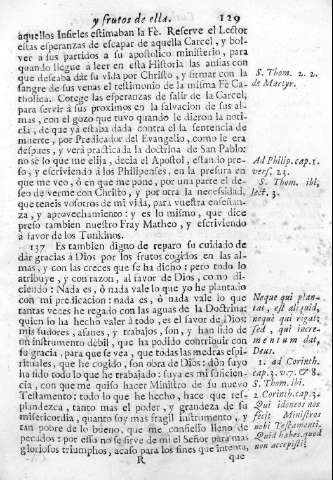 y frutos de ella. 129
aquellos Infieles estimaban la Fè. Reserve el Lector
estas esperanzas de escapar de aquella Carcel, y bol-
ver à sus partidos à su apostolico ministerio, para
quando llegue à leer en esta Historia las ansias con
que deseaba dàr su vida por Christo, y firmar con la
sangre de sus venas el testimonio de la misma Fè Ca-
tholica. Coteje las esperanzas de salir de la Carcel,
para servir à sus proximos en la salvacion de sus al-
mas, con el gozo que tuvo quando le dieron la noti-
cia, de que yà estaba dada contra èl la sentencia de
muerte, por Predicador del Evangelio, como le era
despues, y verà practicada la doctrina de San Pablo:
no sè lo que me elija, decia el Apostol, estando pre-
so, y escriviendo à los Philipenses, en la presura en
que me veo, ò en que me pone, por una parte el de-
seo de verme con Christo, y por otra la necesidad,
que teneis vosotros de mi vida, para vuestra enseñan-
za, y aprovechamiento: y es lo mismo, que dice
preso tambien nuestro Fray Matheo, y escriviendo
à favor de los Tunkinos.
137 Es tambien digno de reparo su cuidado de
dàr gracias à Dios por los frutos cogidos en las al-
mas, y con las creces que se ha dicho: pero todo lo
atribuye, y con razon, al favor de Dios, como di-
ciendo: Nada es, ò nada vale lo que yo he plantado
con mi predicacion: nada es, ò nada vale lo que
tantas veces he regado con las aguas de la Doctrina:
quien lo ha hecho valer à todo, es el favor de Dios:
mis sudores, afanes, y trabajos, son, y han sido de
un instrumento debil, que ha podido contribuir con
su gracia, para que se vea, que todas las medras espiri-
tuales, que he cogido, son obra de Dios: don suyo
ha sido todo lo que he trabajado: suya es mi suficien-
cia, con que me quiso hacer Ministro de su nuevo
Testamento: todo lo que he hecho, hace que res-
plandezca, tanto mas el poder, y grandeza de su
misericordia, quanto soy mas fragil instrumento, y
tan pobre de lo bueno, que me confieso lleno de
pecados: por esso no se sirve de mi el Señor para mas
gloriosos triumphos, acaso para los fines que intenta,
R que
S. Thom. 2. 2.
de Martyr.
Ad Philip. cap. 1.
vers. 23.
S. Thom. ibi,
lect. 3.
Neque qui plan-
tat, est aliquid,
neque qui rigat;
sed, qui incre-
mentum dat,
Deus.
1. ad Corinth.
cap. 3. v. 7. & 8.
S. Thom. ibi.
2. Corinth. cap. 3.
Qui idoneos nos
fecit Ministros
nobi Testamenti.
Quid habes, quod
non accepisti;